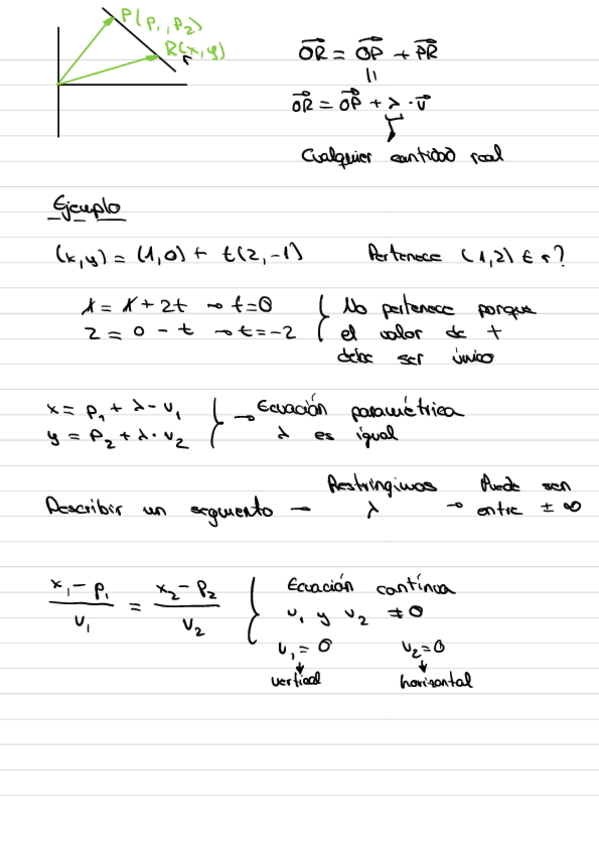 P(p₁,p₂)
R(x,y)
r
OR⃗ = OP⃗ + PR⃗
||
OR⃗ = OP⃗ + λ · v⃗
Cualquier cantidad real
Ejemplo
(x,y) = (1,0) + t(2,-1) Pertenece (1,2) ∈ r?
1 = 1 + 2t → t=0 { No pertenece porque
2 = 0 - t → t=-2 { el valor de t
debe ser único
x = p₁ + λ · v₁ } → Ecuación paramétrica
y = p₂ + λ · v₂ } λ es igual
Describir un segmento → Restringimos λ → Puede ser entre ± ∞
(x₁ - p₁)/v₁ = (x₂ - p₂)/v₂ { Ecuación contínua
v₁ y v₂ ≠ 0
v₁ = 0 v₂ = 0
↓ ↓
vertical horizontal